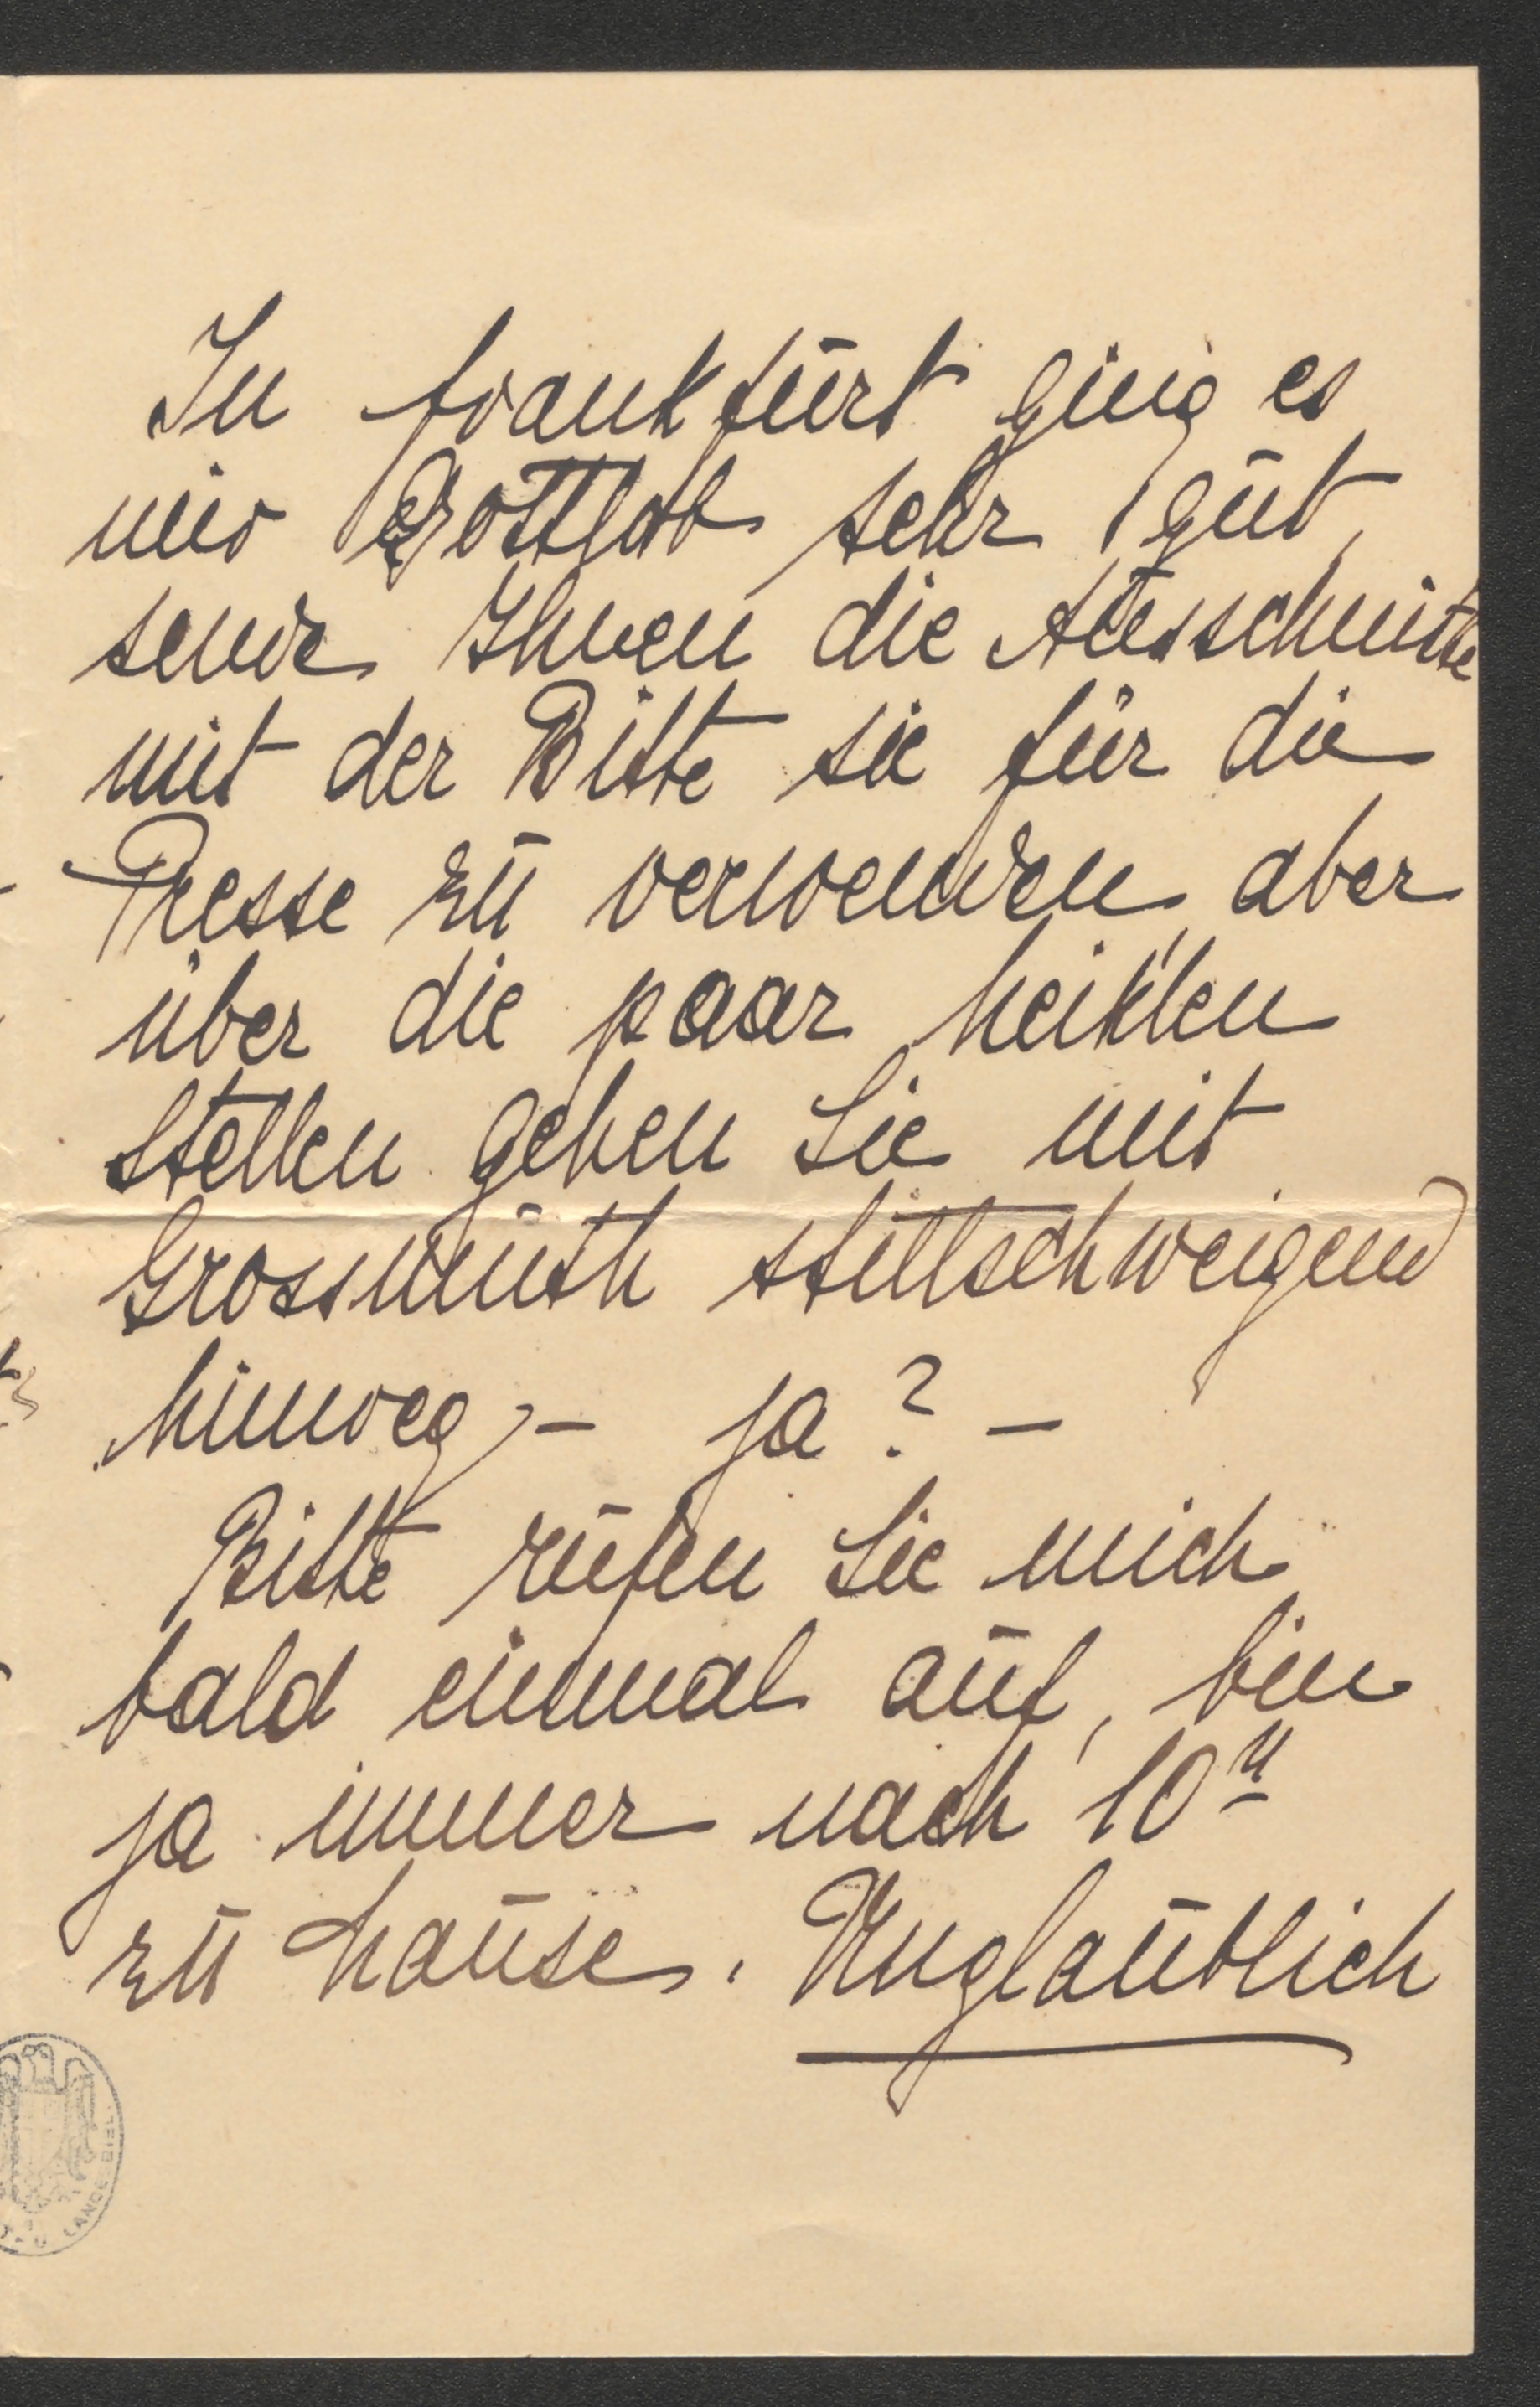 In Frankfurt ging es
mir Gottlob sehr gut,
sende Ihnen die Ausschnitte
mit der Bitte sie für die
Presse zu verwenden, aber
über die paar heiklen
Stellen gehen Sie mit
Grossmuth stillschweigend
hinweg, – ja? –
Bitte rufen Sie mich
bald einmal auf, bin
ja immer nach 10 u
zu Hause. Unglaublich
LANDESBI